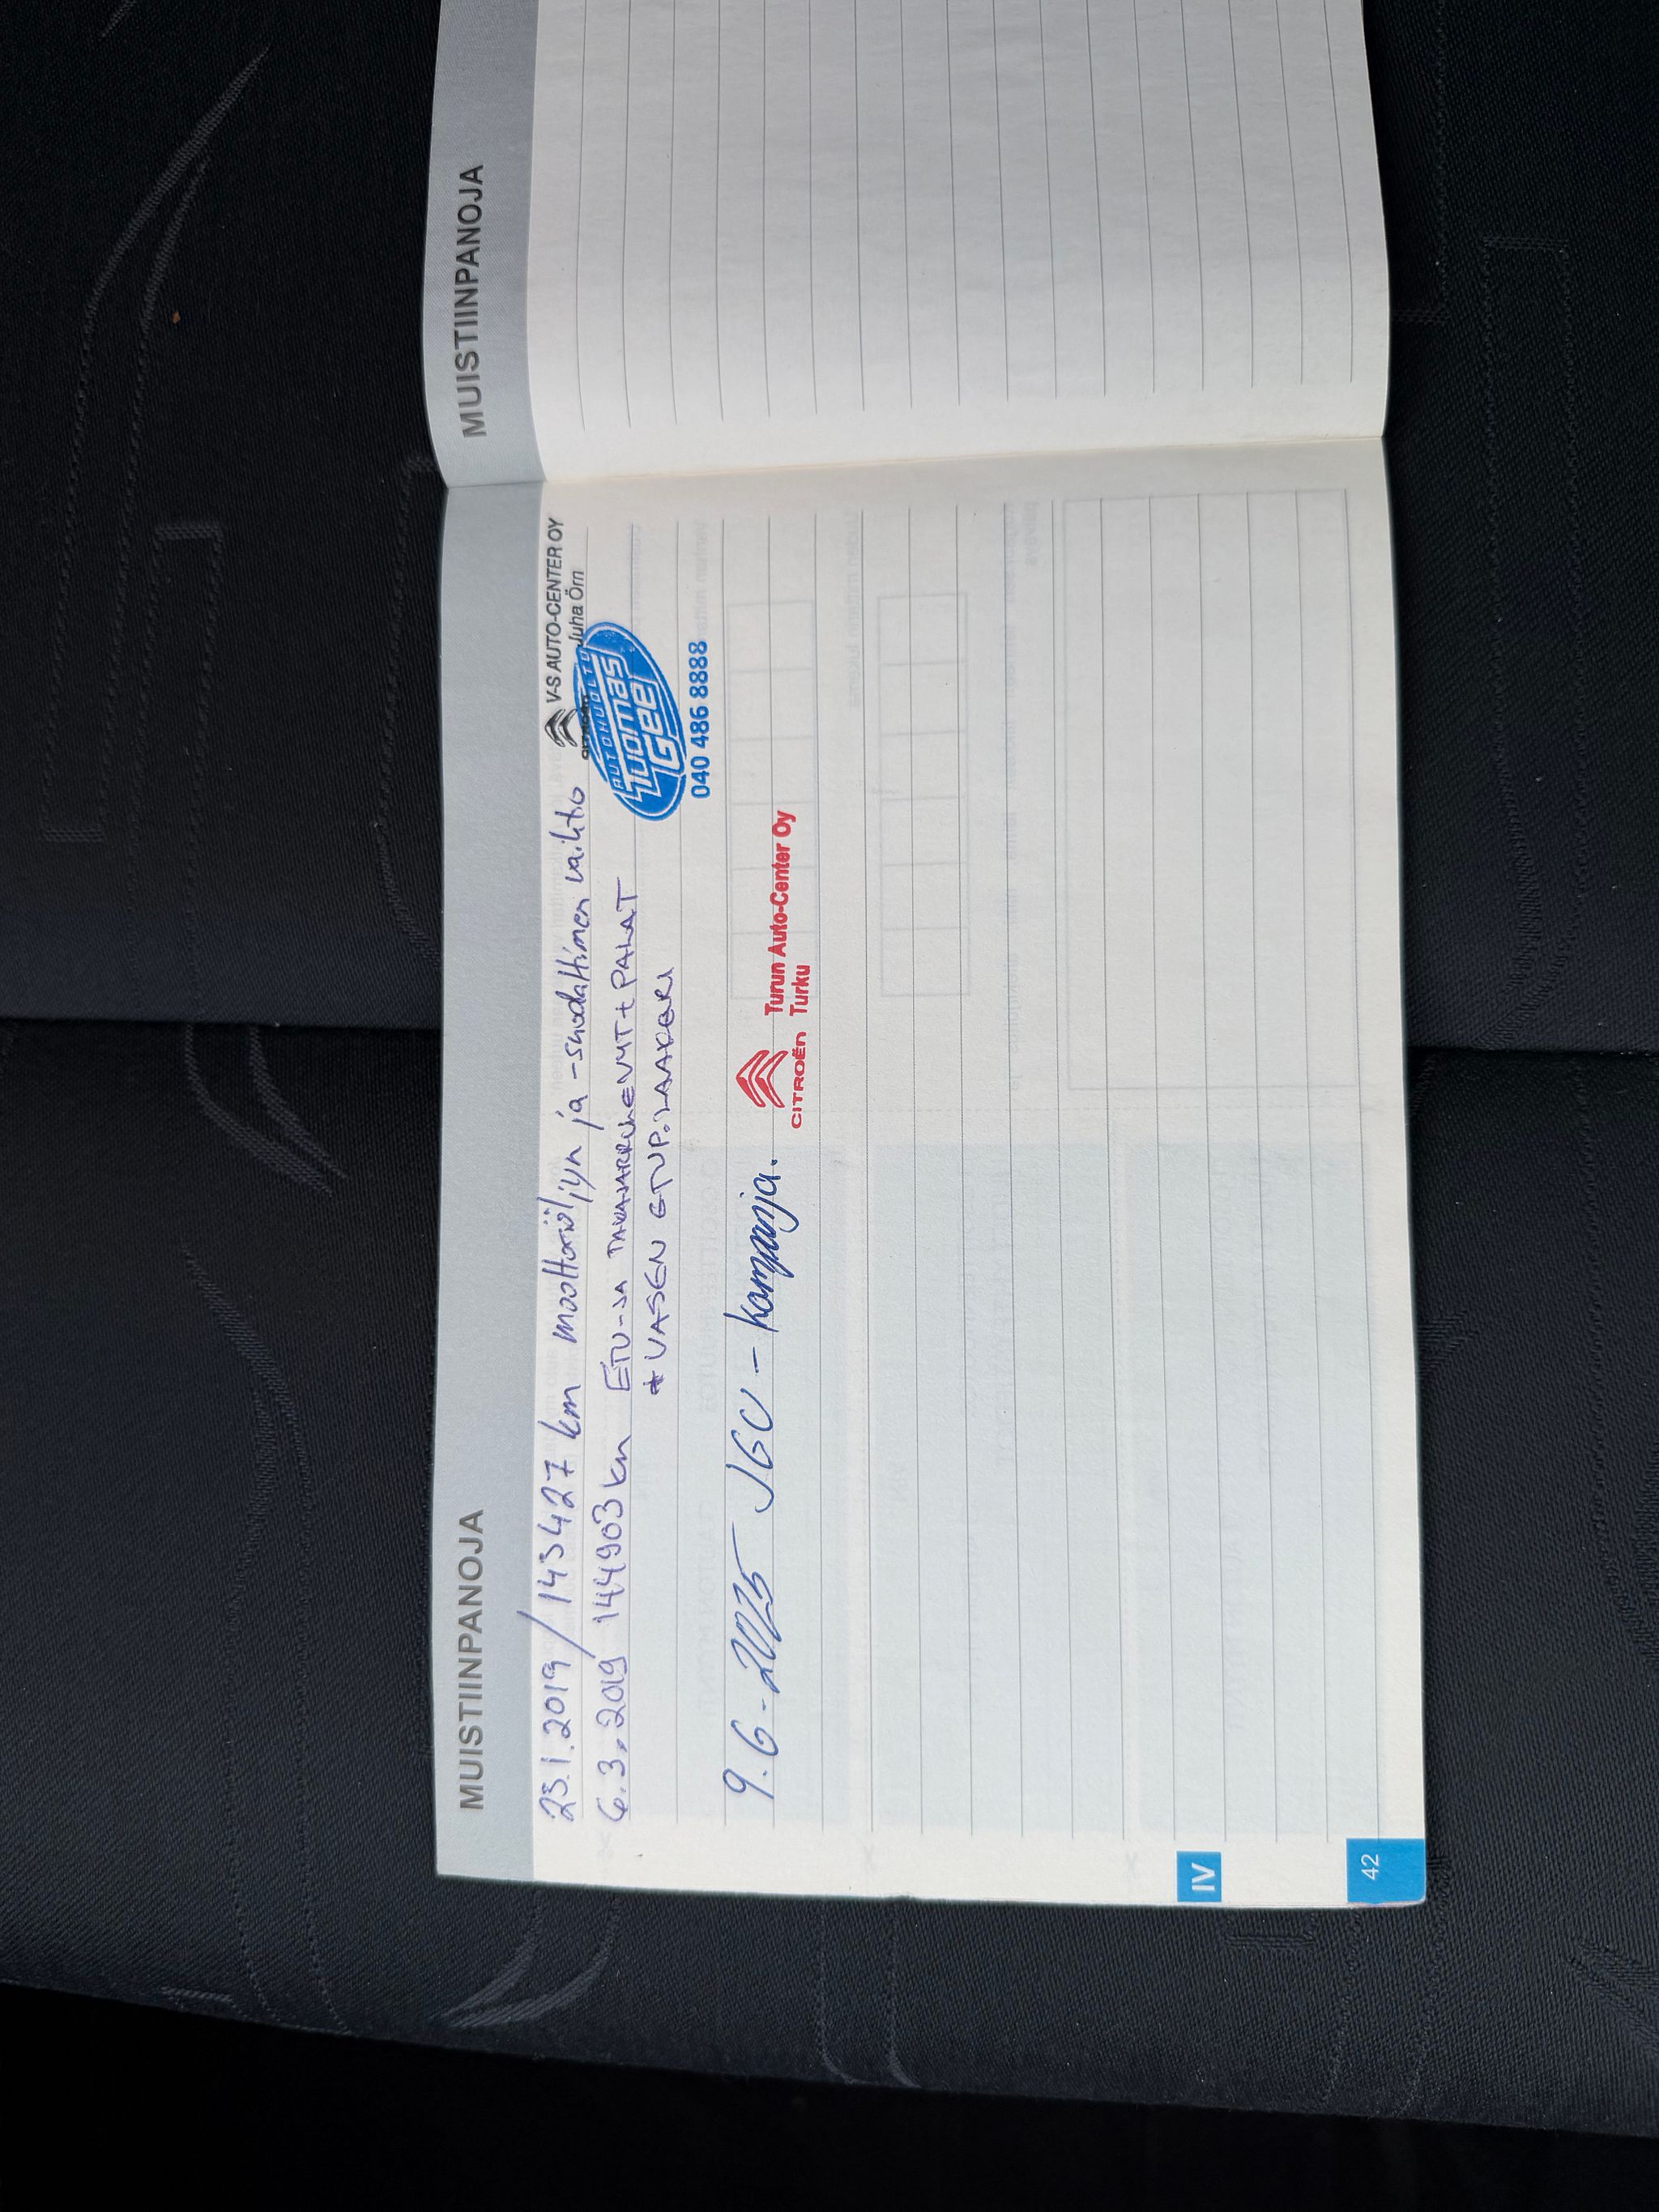 MUISTIINPANOJA
23.1.2019 / 143427 km moottoriöljyn ja -suodattimen vaihto
V-S AUTO-CENTER OY
Juha Örn
CITROËN
6.3.2019 144903 km ETU-JA TAKAJARRULEVYT+PALAT
+ VASEN ETUP.LAAKERI
AUTOHUOLTO
Tuomas
Gee
040 486 8888
9.6-2025 JGC - kampanja.
CITROËN
Turun Auto-Center Oy
Turku
IV
42
MUISTIINPANOJA